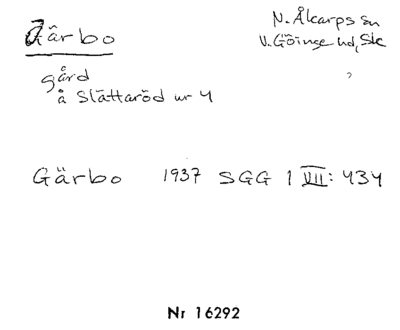 Järbo
N. Åkarps sn
V. Göinge hd, Sk
gård
å Slättaröd nr 4
Gärbo 1937 SGG 1 VII: 434
Nr 16292